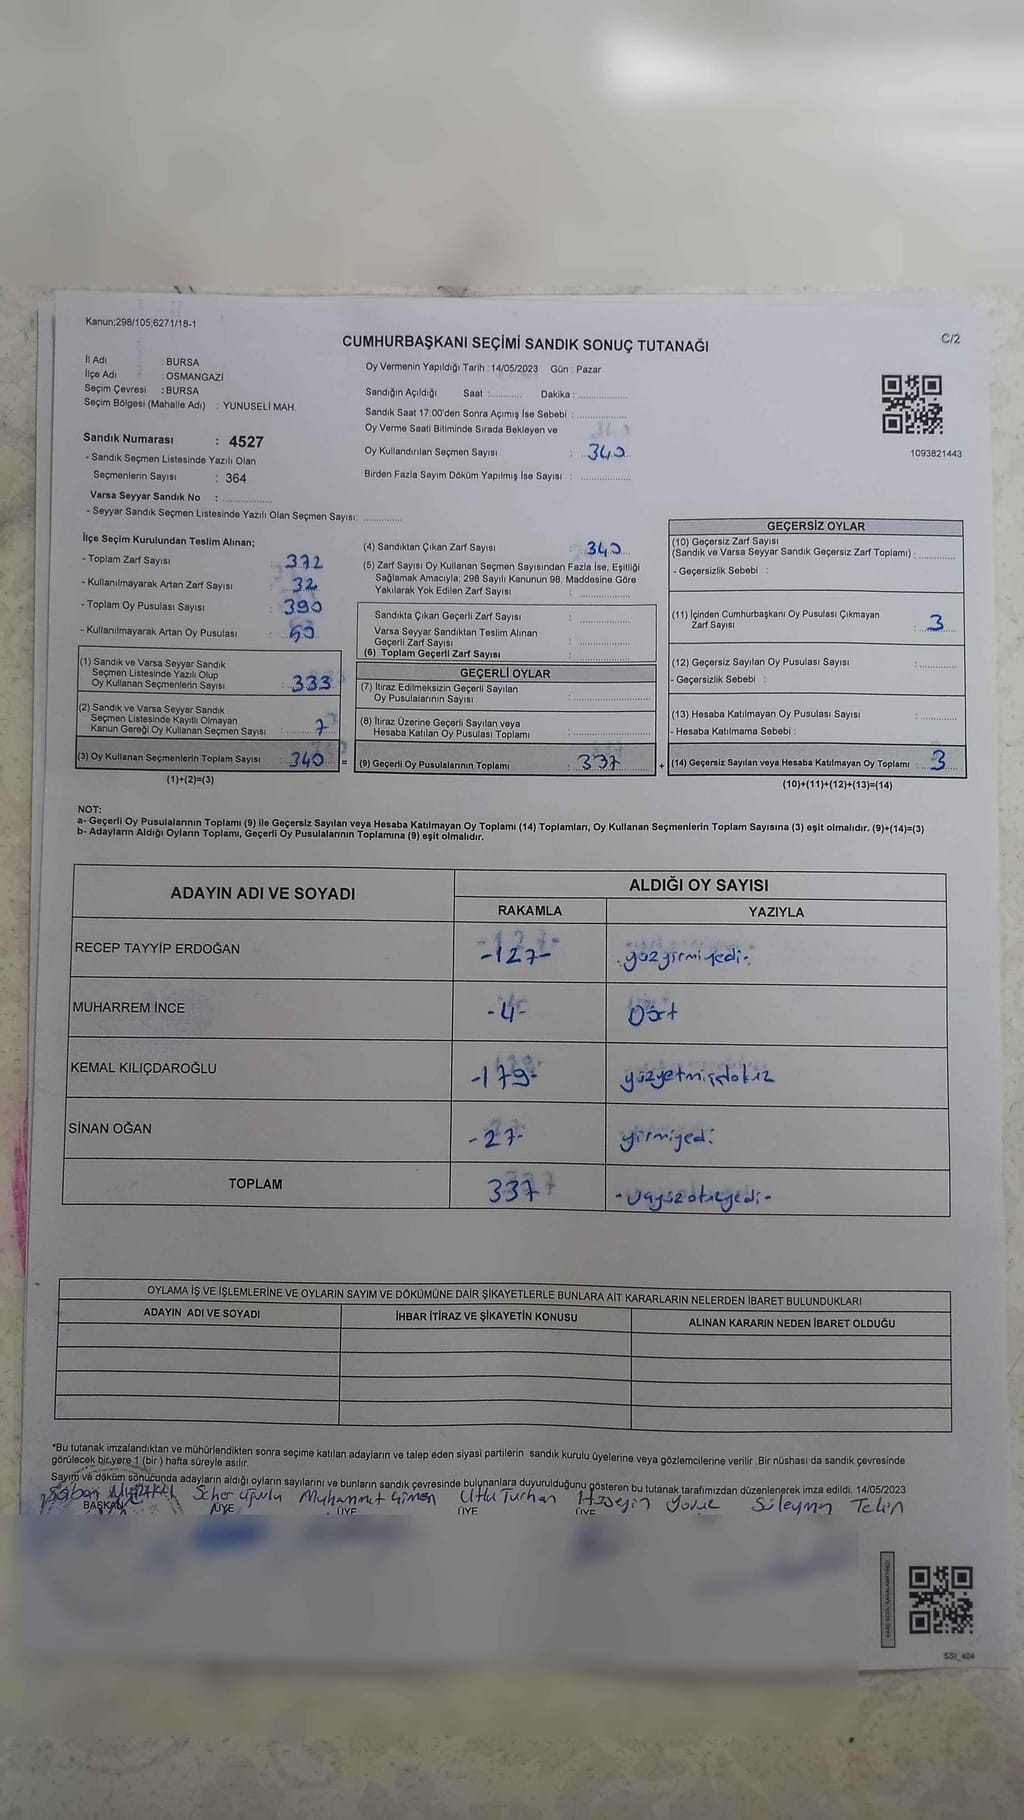 Kanun;298/105,6271/18-1
C/2
CUMHURBAŞKANI SEÇİMİ SANDIK SONUÇ TUTANAĞI
İl Adı : BURSA
İlçe Adı : OSMANGAZİ
Seçim Çevresi : BURSA
Seçim Bölgesi (Mahalle Adı) : YUNUSELİ MAH.
Oy Vermenin Yapıldığı Tarih : 14/05/2023 Gün : Pazar
Sandığın Açıldığı Saat :........... Dakika :................
Sandık Saat 17:00'den Sonra Açımış İse Sebebi :................
Oy Verme Saati Bitiminde Sırada Bekleyen ve
Oy Kullandırılan Seçmen Sayısı : 340
Birden Fazla Sayım Döküm Yapılmış İse Sayısı :................
1093821443
Sandık Numarası : 4527
- Sandık Seçmen Listesinde Yazılı Olan
Seçmenlerin Sayısı : 364
Varsa Seyyar Sandık No :................
- Seyyar Sandık Seçmen Listesinde Yazılı Olan Seçmen Sayısı:............
İlçe Seçim Kurulundan Teslim Alınan;
- Toplam Zarf Sayısı : 372
- Kullanılmayarak Artan Zarf Sayısı : 32
- Toplam Oy Pusulası Sayısı : 390
- Kullanılmayarak Artan Oy Pusulası :
(1) Sandık ve Varsa Seyyar Sandık
Seçmen Listesinde Yazılı Olup
Oy Kullanan Seçmenlerin Sayısı : 333
(2) Sandık ve Varsa Seyyar Sandık
Seçmen Listesinde Kayıtlı Olmayan
Kanun Gereği Oy Kullanan Seçmen Sayısı : 7
(3) Oy Kullanan Seçmenlerin Toplam Sayısı : 340 =
(1)+(2)=(3)
(4) Sandıktan Çıkan Zarf Sayısı : 340
(5) Zarf Sayısı Oy Kullanan Seçmen Sayısından Fazla İse, Eşitliği
Sağlamak Amacıyla; 298 Sayılı Kanunun 98. Maddesine Göre
Yakılarak Yok Edilen Zarf Sayısı :................
Sandıkta Çıkan Geçerli Zarf Sayısı :................
Varsa Seyyar Sandıktan Teslim Alınan
Geçerli Zarf Sayısı :................
(6) Toplam Geçerli Zarf Sayısı :................
GEÇERLİ OYLAR
(7) İtiraz Edilmeksizin Geçerli Sayılan
Oy Pusulalarının Sayısı :................
(8) İtiraz Üzerine Geçerli Sayılan veya
Hesaba Katılan Oy Pusulası Toplamı :................
(9) Geçerli Oy Pusulalarının Toplamı : 337 +
GEÇERSİZ OYLAR
(10) Geçersiz Zarf Sayısı
(Sandık ve Varsa Seyyar Sandık Geçersiz Zarf Toplamı) :............
- Geçersizlik Sebebi :
(11) İçinden Cumhurbaşkanı Oy Pusulası Çıkmayan
Zarf Sayısı : 3
(12) Geçersiz Sayılan Oy Pusulası Sayısı :............
- Geçersizlik Sebebi :
(13) Hesaba Katılmayan Oy Pusulası Sayısı :............
- Hesaba Katılmama Sebebi :
(14) Geçersiz Sayılan veya Hesaba Katılmayan Oy Toplamı : 3
(10)+(11)+(12)+(13)=(14)
NOT:
a- Geçerli Oy Pusulalarının Toplamı (9) ile Geçersiz Sayılan veya Hesaba Katılmayan Oy Toplamı (14) Toplamları, Oy Kullanan Seçmenlerin Toplam Sayısına (3) eşit olmalıdır. (9)+(14)=(3)
b- Adayların Aldığı Oyların Toplamı, Geçerli Oy Pusulalarının Toplamına (9) eşit olmalıdır.
ADAYIN ADI VE SOYADI
ALDIĞI OY SAYISI
RAKAMLA YAZIYLA
RECEP TAYYİP ERDOĞAN -127- -yüzyirmiyedi-
MUHARREM İNCE -4- Dört
KEMAL KILIÇDAROĞLU -179- yüzyetmişdokuz
SİNAN OĞAN -27- yirmiyedi
TOPLAM 337
OYLAMA İŞ VE İŞLEMLERİNE VE OYLARIN SAYIM VE DÖKÜMÜNE DAİR ŞİKAYETLERLE BUNLARA AİT KARARLARIN NELERDEN İBARET BULUNDUKLARI
ADAYIN ADI VE SOYADI İHBAR İTİRAZ VE ŞİKAYETİN KONUSU ALINAN KARARIN NEDEN İBARET OLDUĞU
*Bu tutanak imzalandıktan ve mühürlendikten sonra seçime katılan adayların ve talep eden siyasi partilerin sandık kurulu üyelerine veya gözlemcilerine verilir .Bir nüshası da sandık çevresinde
görülecek bir yere 1 (bir ) hafta süreyle asılır.
Sayım ve döküm sonucunda adayların aldığı oyların sayılarını ve bunların sandık çevresinde bulunanlara duyurulduğunu gösteren bu tutanak tarafımızdan düzenlenerek imza edildi. 14/05/2023
Şaban Seher Uğurlu Muhammet Utku Turhan Hüseyin Süleyman Tekin
BAŞKAN ÜYE ÜYE ÜYE ÜYE
SSI_404